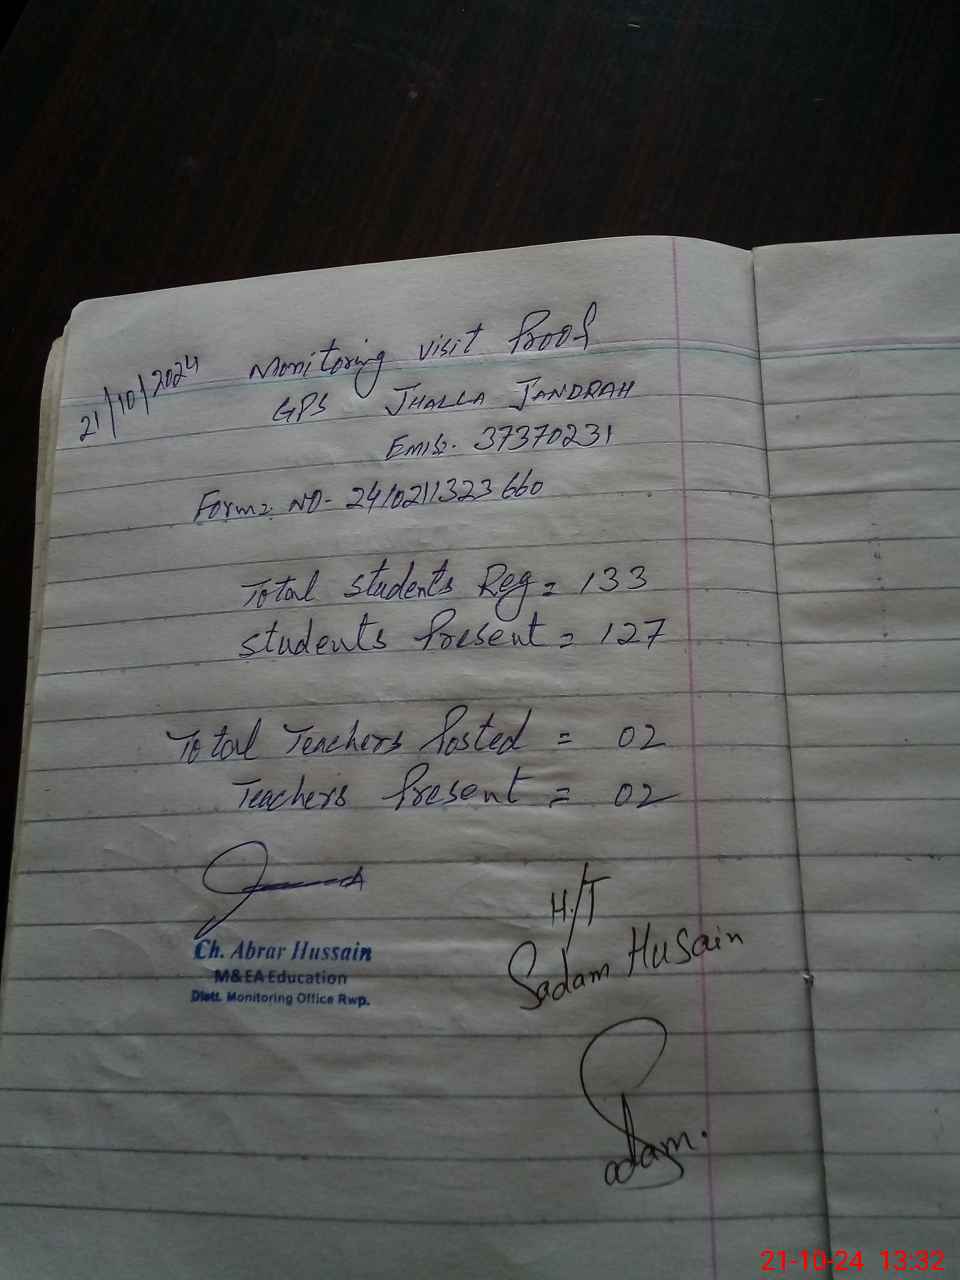 21/10/2024 Monitoring visit Proof
GPS JHALLA JANDRAH
Emis:- 37370231
Form: NO- 2410211323660
Total students Reg = 133
students Present = 127
Total Teachers Posted = 02
Teachers Present = 02
Ch. Abrar Hussain
M&EA Education
Distt. Monitoring Office Rwp.
H/T
Sadam Husain
Sadam.
21-10-24 13:32